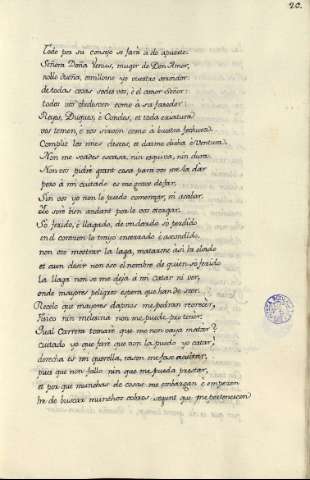 20.
Todo por su consejo se fará á do apueste.
Señora Doña Venus, muger de Don Amor,
noble dueña, omillome yo vuestro servidor
de todas cosas sodes vos, é el amor Señor:
todos vos obedescen como á su fasedor:
Reyes, Duques, é Condes, et toda criatura
vos temen, é vos sirven como á vuestra fechura:
Complit los mios deseos, et datme dicha é Ventura:
Non me seades escasa, nin esquiva, nin dura.
Non vos pidré grant cosa para vos me la dar
pero á mi cuitado es me grave de far.
Sin vos yo non lo puedo comenzar, ni acabar.
Yo seré bien andant por lo vos otorgar.
Só ferido, é llagado, de un dardo só perdido
en el corazon lo traygo encerrado é ascondido,
non oso mostrar la laga, matarme á si la olvido
et aun desir non oso el nombre de quien só ferido
La llaga non se me dejá á mi catar ni ver,
ende mayores peligros espera que han de seer.
Recelo que mayores daños me podran recrecer,
Física nin melesina non me puede pro tener:
Qual Carrera tomaré que me non vaya matar?
cuitado yo que faré que non la puedo yo catar?
derecha es mi querella, rason me fase cuitar,
pues que non fallo nin que me pueda prestar,
et por que munchas de cosas me embargan é empecen
he de buscar munchos cobros segunt que me pertenescen